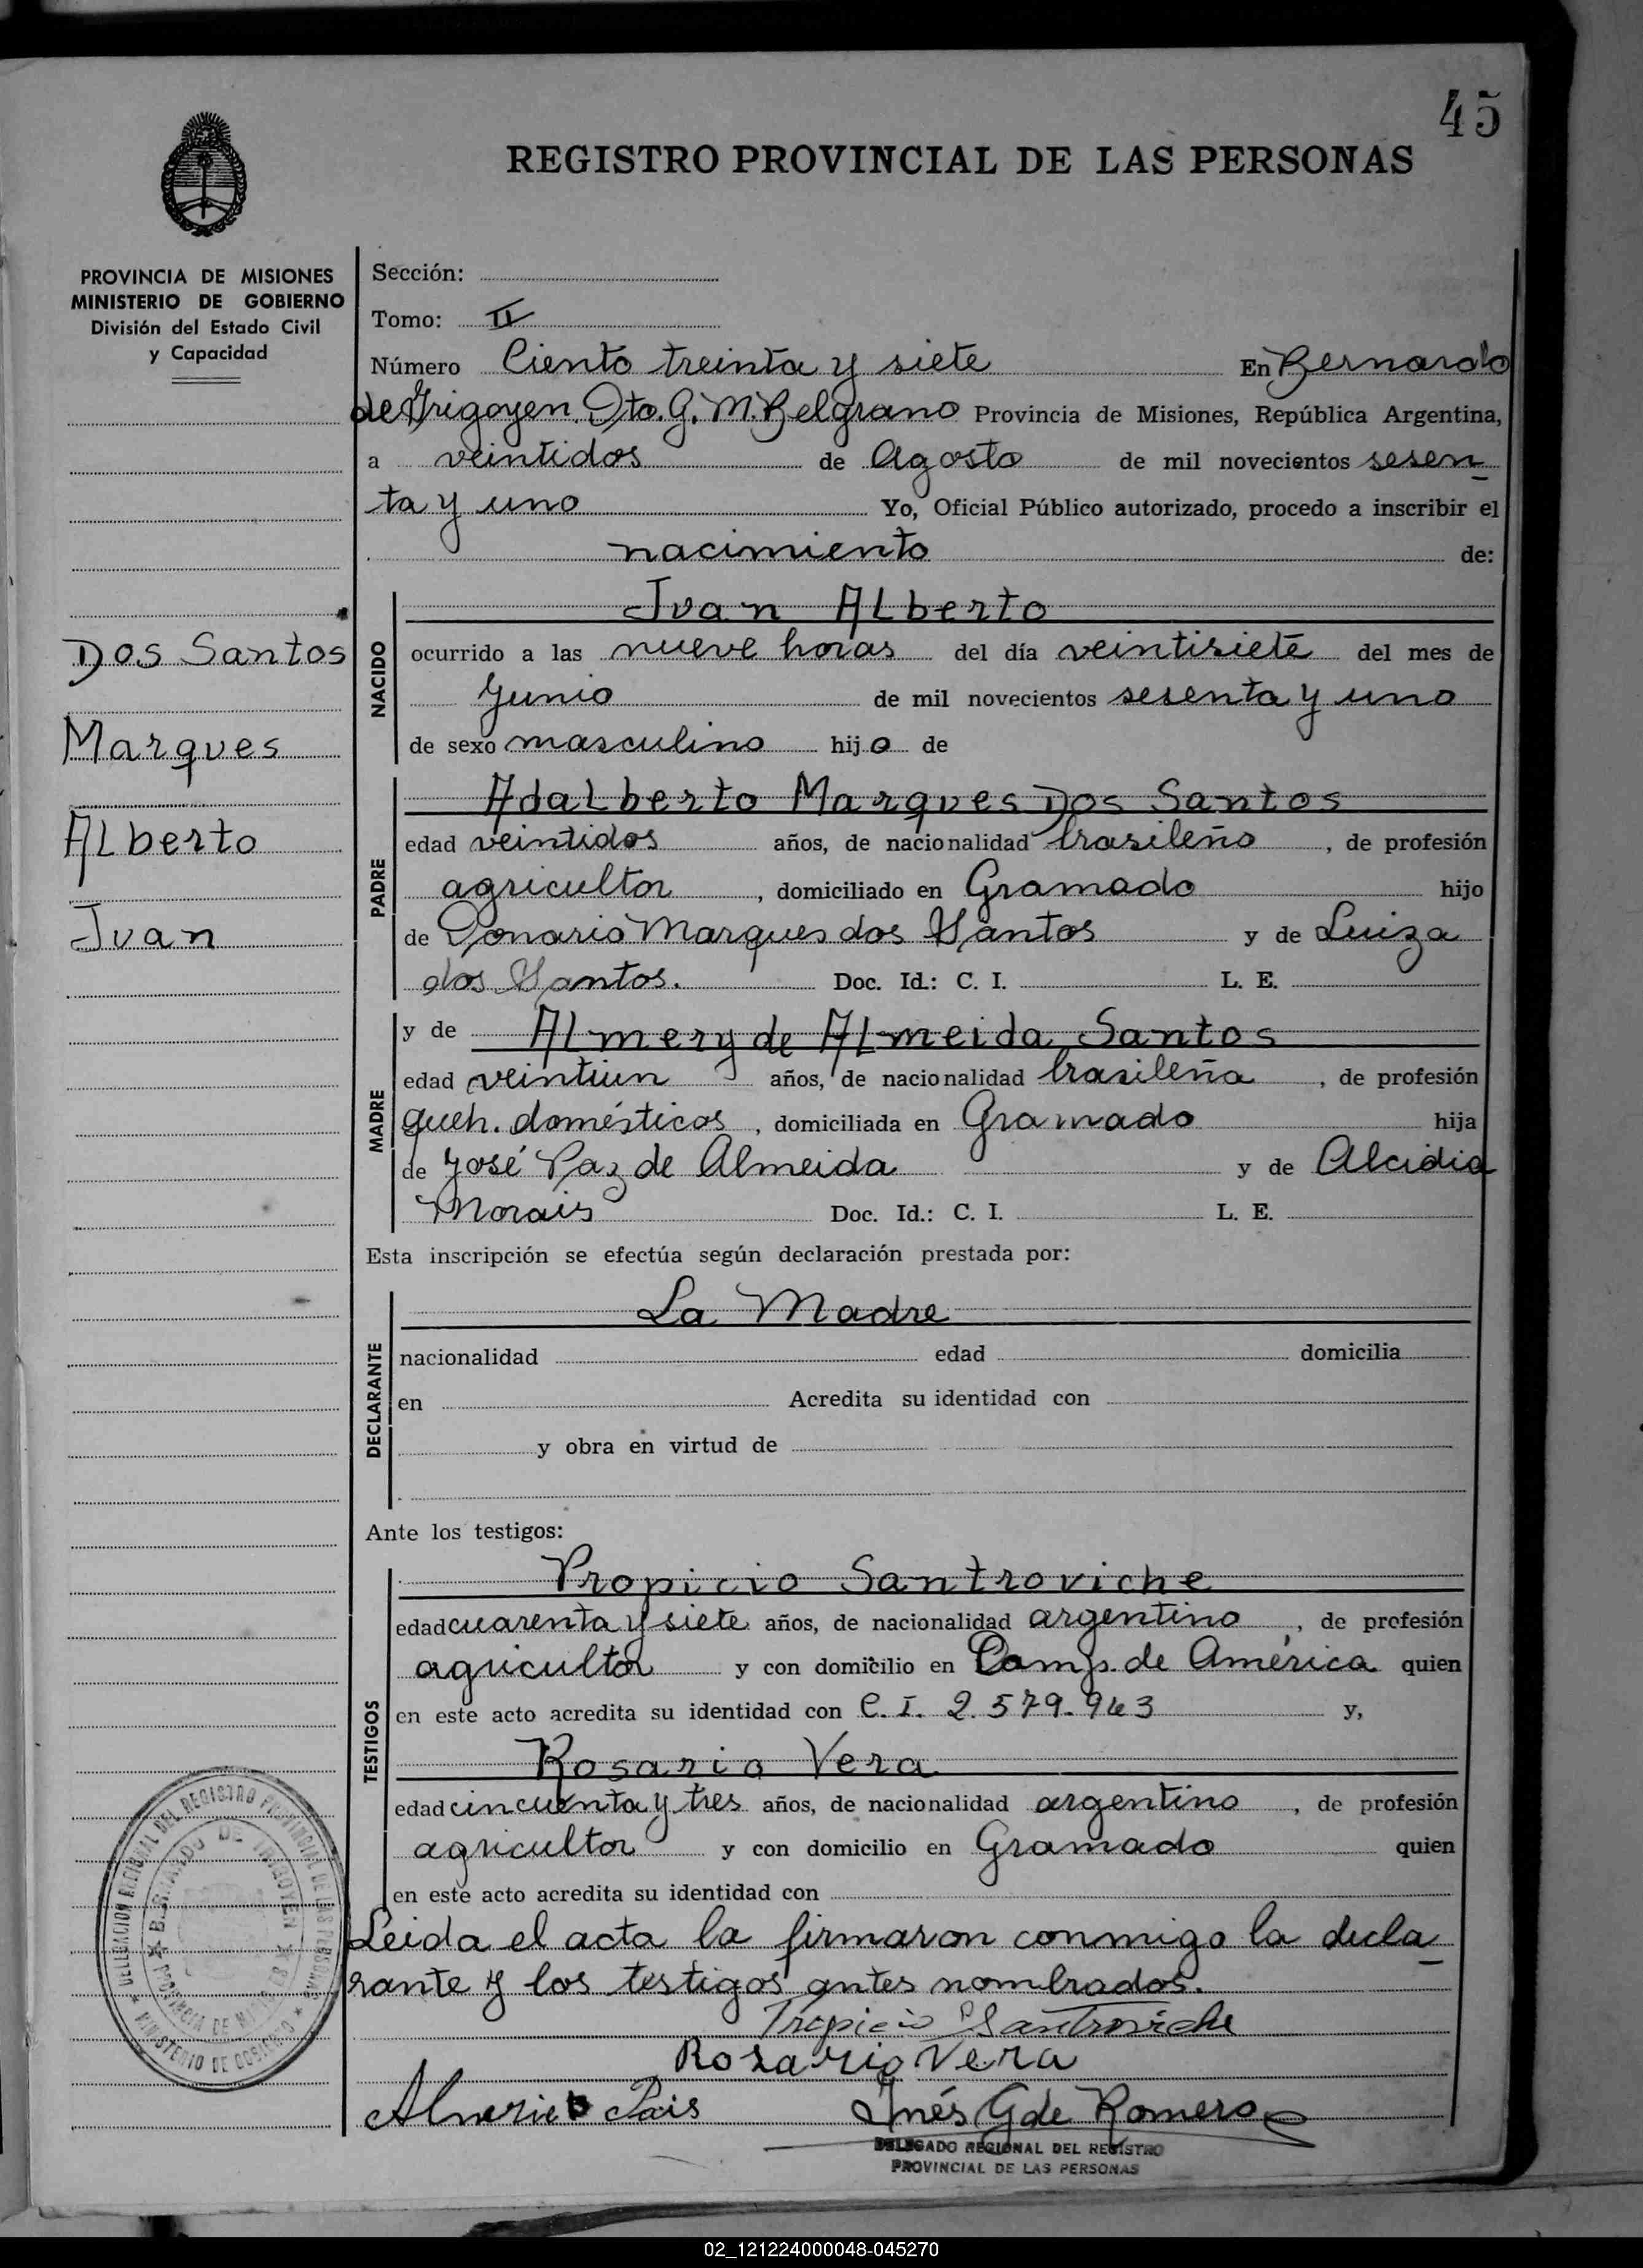 45
REGISTRO PROVINCIAL DE LAS PERSONAS
PROVINCIA DE MISIONES
MINISTERIO DE GOBIERNO
División del Estado Civil
y Capacidad
Dos Santos
Marques
Alberto
Juan
Sección:
Tomo: II
Número Ciento treinta y siete En Bernardo
de Irigoyen Dto. G. M. Belgrano Provincia de Misiones, República Argentina,
a veintidos de Agosto de mil novecientos sesen
ta y uno Yo, Oficial Público autorizado, procedo a inscribir el
nacimiento de:
NACIDO
Juan Alberto
ocurrido a las nueve horas del día veintisiete del mes de
Junio de mil novecientos sesenta y uno
de sexo masculino hijo de
PADRE
Adalberto Marques Dos Santos
edad veintidos años, de nacionalidad brasileño, de profesión
agricultor, domiciliado en Gramado hijo
de Donario Marques dos Santos y de Luiza
dos Santos. Doc. Id.: C. I. L. E.
MADRE
y de Almery de Almeida Santos
edad veintiun años, de nacionalidad brasileña, de profesión
queh. domésticos, domiciliada en Gramado hija
de José Paz de Almeida y de Alcidia
Morais Doc. Id.: C. I. L. E.
Esta inscripción se efectúa según declaración prestada por:
DECLARANTE
La Madre
nacionalidad edad domicilia
en Acredita su identidad con
y obra en virtud de
Ante los testigos:
TESTIGOS
Propicio Santroviche
edad cuarenta y siete años, de nacionalidad argentino, de profesión
agricultor y con domicilio en Camp. de América quien
en este acto acredita su identidad con C. I. 2.579.943 y,
Rosario Vera
edad cincuenta y tres años, de nacionalidad argentino, de profesión
agricultor y con domicilio en Gramado quien
en este acto acredita su identidad con
Leida el acta la firmaron conmigo la decla
rante y los testigos antes nombrados.
Santroviche
Rosario Vera
Pais
Inés G de Romero
DELEGADO REGIONAL DEL REGISTRO
PROVINCIAL DE LAS PERSONAS
DELEGACION REGIONAL DEL REGISTRO PROVINCIAL DE LAS PERSONAS
MINISTERIO DE GOBIERNO
BERNARDO DE IRIGOYEN
PROVINCIA DE MISIONES
02_121224000048-045270